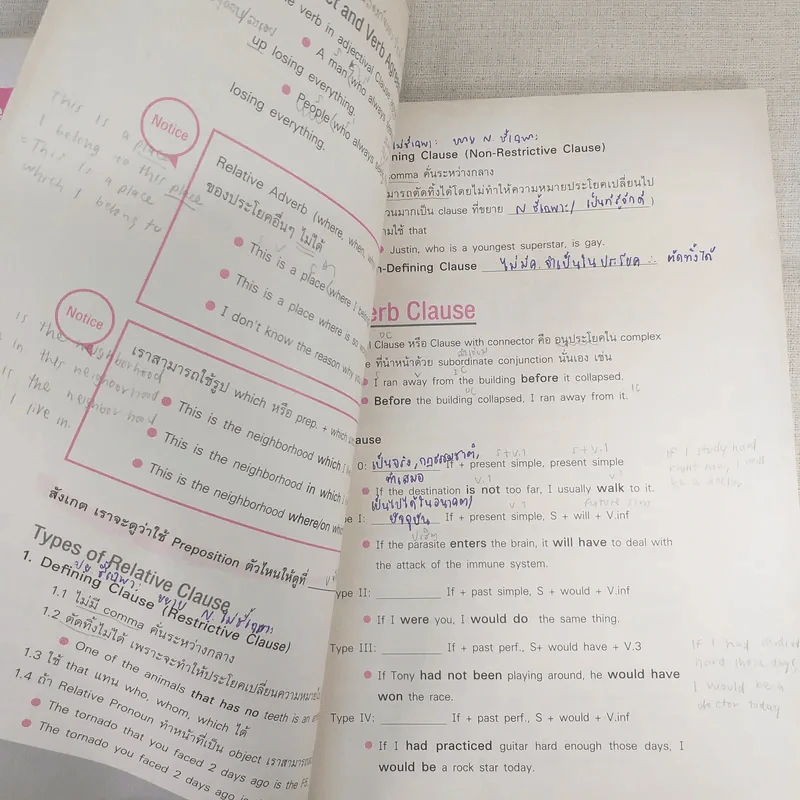 ct and Verb Agree
he verb in adjectival Clause
A man (who always
up losing everything.
People (who always
losing everything.
This is a place
I belong to this place
= This is a place
which I belong to
Notice
Relative Adverb (where, when, why
ของประโยคอื่นๆ ไม่ได้
This is a place (where I belong
This is a place where is so
I don't know the reason why you
Notice
is the neighborhood
in this neighborhood
is the neighborhood
I live in.
เราสามารถใช้รูป which หรือ prep. + which
This is the neighborhood which I
This is the neighborhood in which I
This is the neighborhood where/on which
สังเกต เราจะดูว่าใช้ Preposition ตัวไหนให้ดูที่
Types of Relative Clause
1. Defining Clause (Restrictive Clause)
ขยาย N. ไม่ชี้เฉพาะ
1.1 ไม่มี comma คั่นระหว่างกลาง
1.2 ตัดทิ้งไม่ได้ เพราะจะทำให้ประโยคเปลี่ยนความหมาย
One of the animals that has no teeth is an
1.3 ใช้ that แทน who, whom, which ได้
1.4 ถ้า Relative Pronoun ทำหน้าที่เป็น object เราสามารถ
The tornado that you faced 2 days ago is the F5.
The tornado you faced 2 days ago is
ไม่ชี้เฉพาะ: ขยาย N. ชี้เฉพาะ
ning Clause (Non-Restrictive Clause)
comma คั่นระหว่างกลาง
มารถตัดทิ้งได้โดยไม่ทำให้ความหมายประโยคเปลี่ยนไป
วนมากเป็น clause ที่ขยาย N ชี้เฉพาะ/ เป็นที่รู้จักดี
ามใช้ that
Justin, who is a youngest superstar, is gay.
n-Defining Clause ไม่มีค.จำเป็นในประโยค ∴ ตัดทิ้งได้
erb Clause
l Clause หรือ Clause with connector คือ อนุประโยคใน complex
e ที่นำหน้าด้วย subordinate conjunction นั่นเอง เช่น
I ran away from the building before it collapsed.
Before the building collapsed, I ran away from it.
ause
0: เป็นจริง, กฎธรรมชาติ, ทำเสมอ If + present simple, present simple
s+v.1 s+v.1
If the destination is not too far, I usually walk to it.
เป็นไปได้ในอนาคต/ปัจจุบัน
pe I: If + present simple, S + will + V.inf
If the parasite enters the brain, it will have to deal with
the attack of the immune system.
ype II: If + past simple, S + would + V.inf
If I were you, I would do the same thing.
Type III: If + past perf., S+ would have + V.3
If Tony had not been playing around, he would have
won the race.
Type IV: If + past perf., S + would + V.inf
If I had practiced guitar hard enough those days, I
would be a rock star today.
If I study hard
right now, I will
be a doctor
If I had studied
hard those days,
I would be a
doctor today